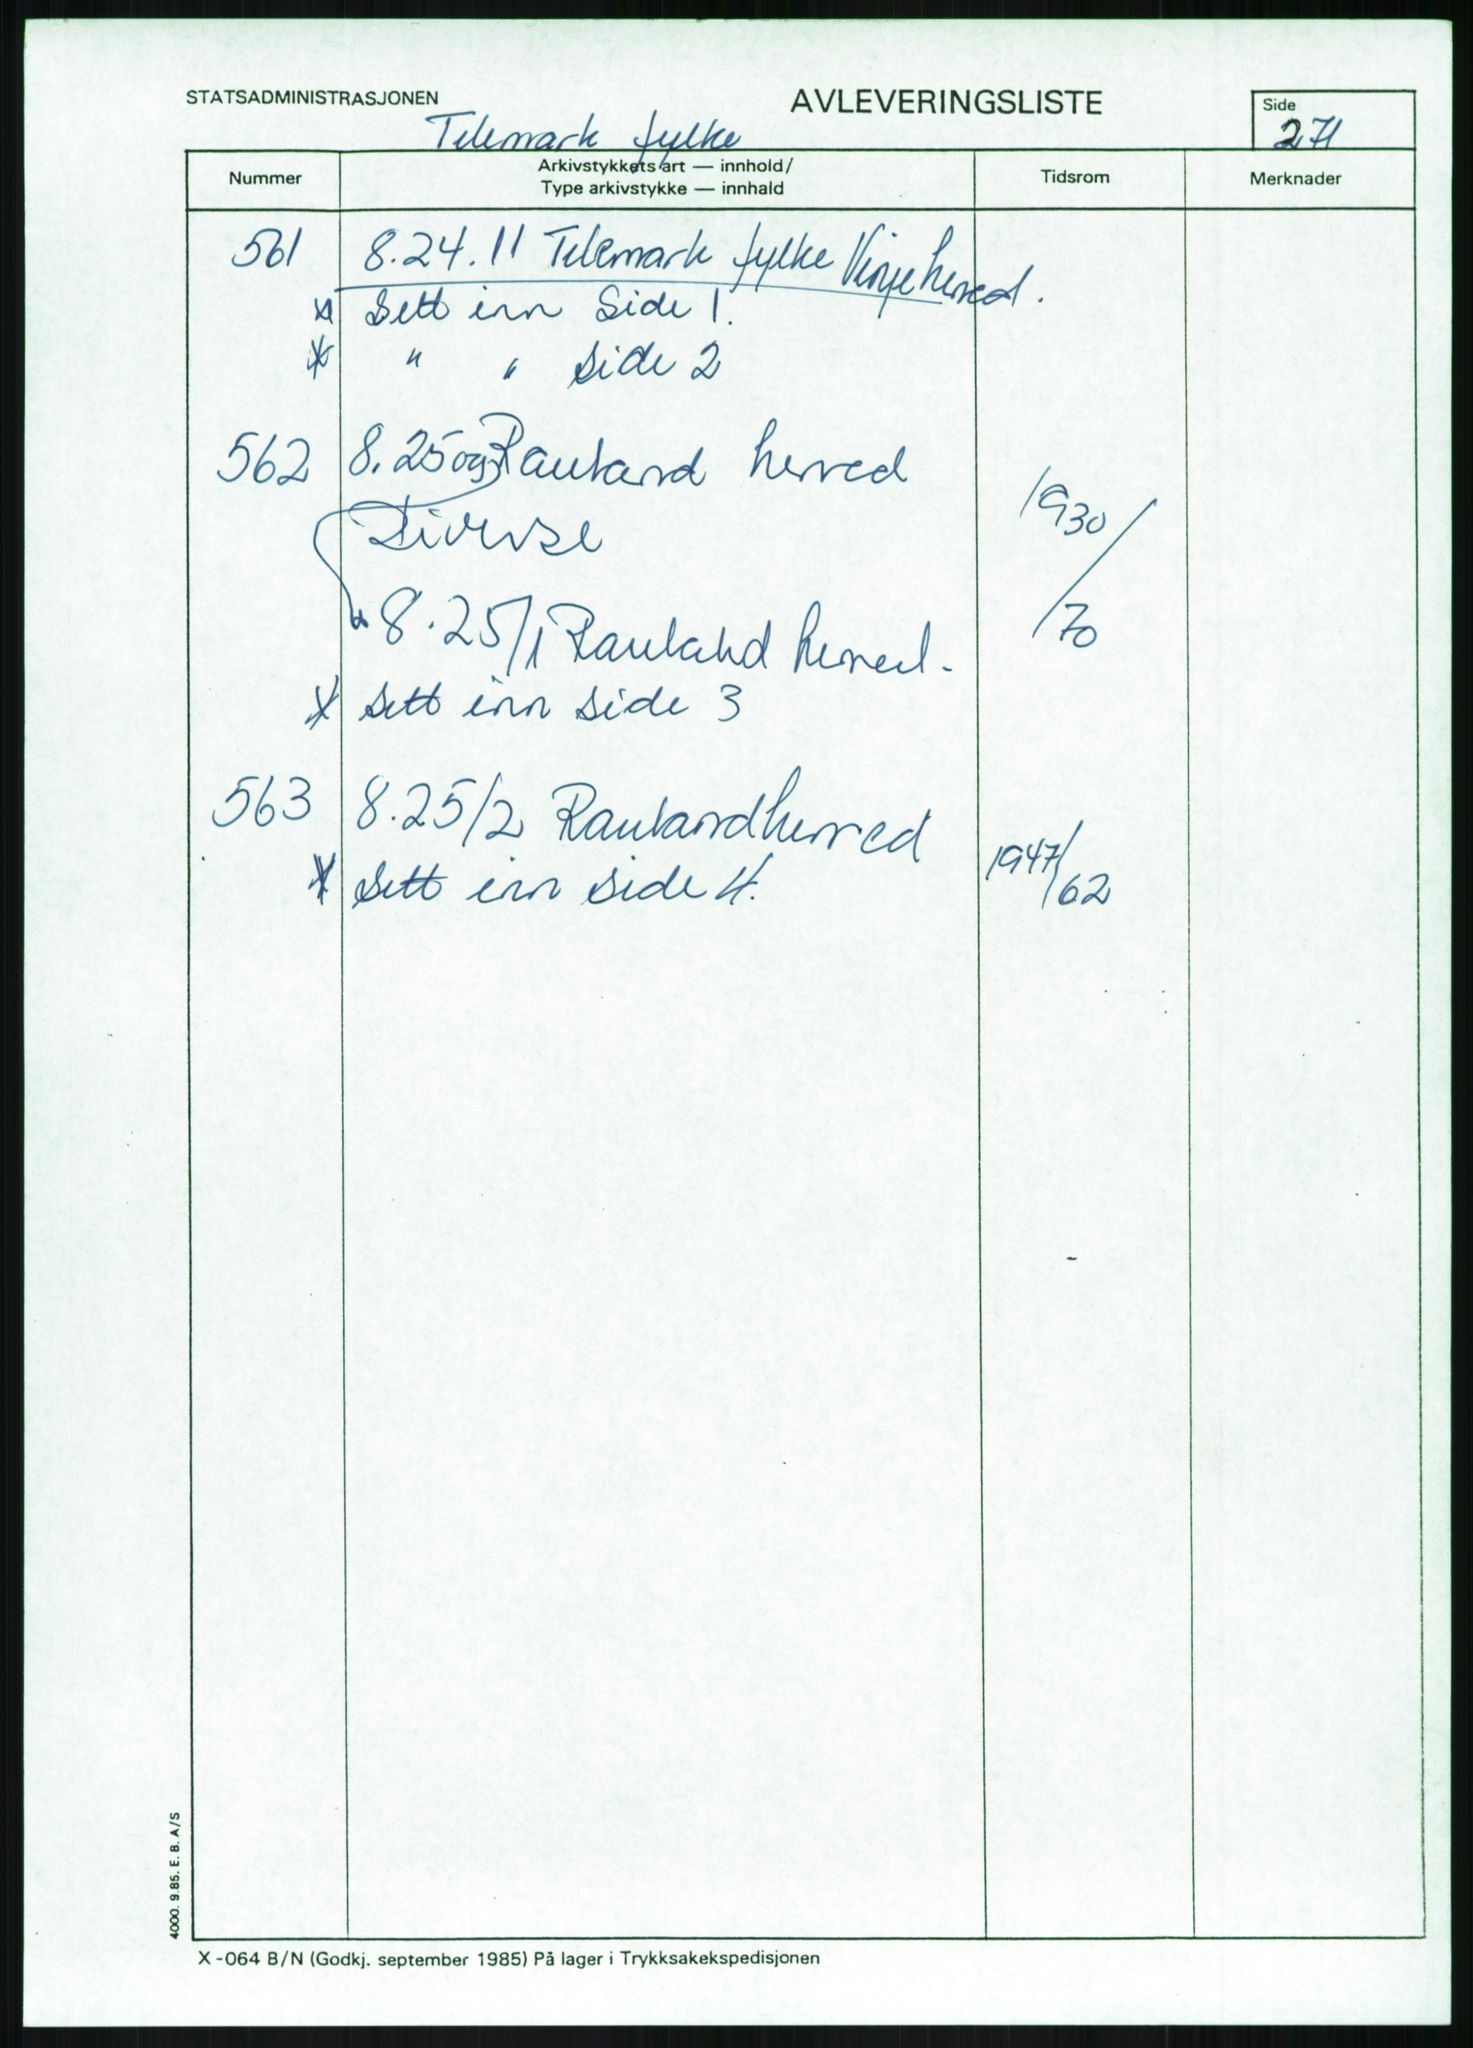 STATSADMINISTRASJONEN
AVLEVERINGSLISTE
Side
271
Telemark fylke
Nummer
Arkivstykkets art — innhold/
Type arkivstykke — innhald
Tidsrom
Merknader
561 8.24.11 Telemark fylke Vinje herred.
x Sett inn Side 1.
x " " side 2
562 8.25 og Rauland herred
Diverse
1930/70
" 8.25/1 Rauland herred.
x Sett inn side 3
563 8.25/2 Rauland herred
1947/62
x Sett inn side 4.
4000. 9.85. E. B. A/S
X-064 B/N (Godkj. september 1985) På lager i Trykksakekspedisjonen